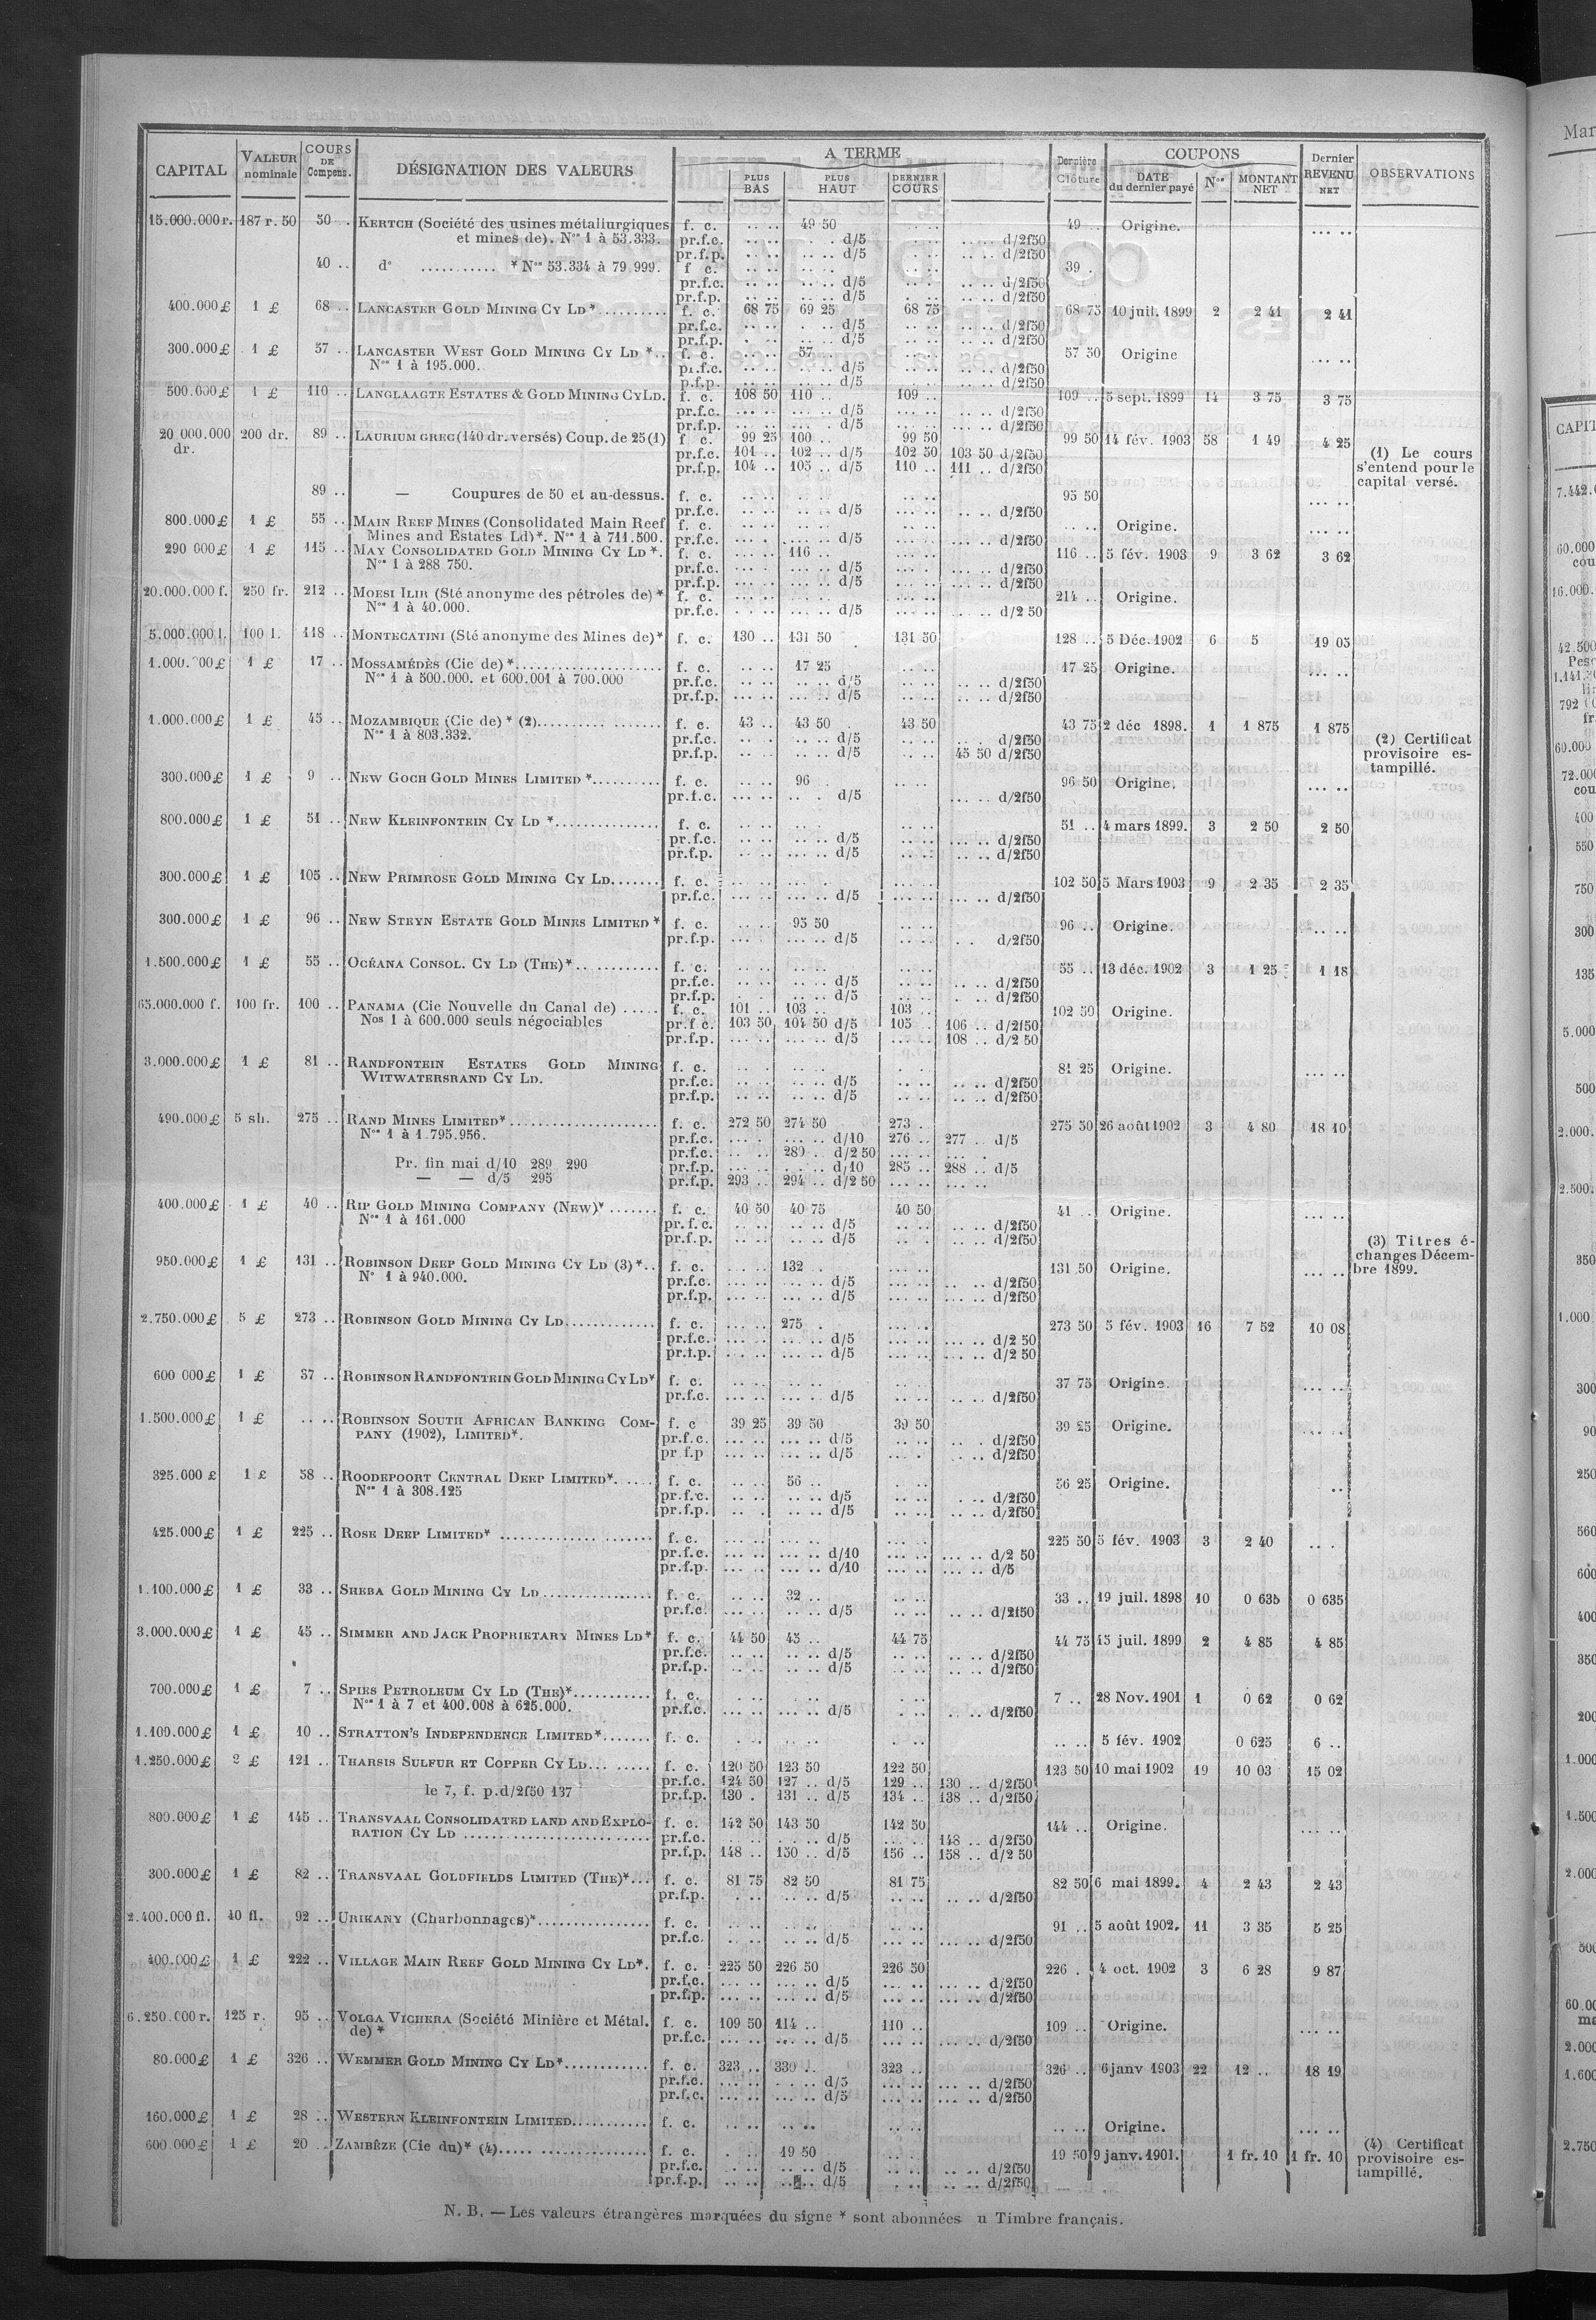 CAPITAL VALEUR nominale COURS DE Compens. DÉSIGNATION DES VALEURS A TERME PLUS BAS PLUS HAUT DERNIER COURS Dernière Clôture COUPONS DATE du dernier payé Nos MONTANT NET Dernier REVENU NET OBSERVATIONS
15.000.000 r. 187 r. 50 50 . KERTCH (Société des usines métallurgiques f. c. .. .. 49 50 .. .. 49 .. Origine. ... ..
et mines de). Nos 1 à 53.333. pr.f.c. .. .. . . d/5 .. .. d/2f50
pr.f.p. .. .. .. .. d/5 .. .. d/2f50
40 .. do ........... * Nos 53.334 à 79.999. f c. .. .. .. .. 39 .
pr.f.c. .. .. .. .. d/5 .. .. d/2f50
pr.f.p. .. .. .. .. d/5 .. .. d/2f50
400.000 £ 1 £ 68 .. LANCASTER GOLD MINING CY LD * .......... f. c. 68 75 69 25 68 75 68 75 10 juil. 1899 2 2 41 2 41
pr.f.c. .. .. . . d/5 .. .. d/2f50
pr.f.p. .. .. .. d/5 .. .. d/2f50
300.000 £ 1 £ 57 .. LANCASTER WEST GOLD MINING CY LD *.. f. c. .. .. 57 .. .. .. 57 50 Origine ... ..
Nos 1 à 195.000. pr.f.c. .. .. .. .. d/5 .. .. d/2f50
p.f.p. .. .. .. .. d/5 .. .. d/2f50
500.000 £ 1 £ 110 .. LANGLAAGTE ESTATES & GOLD MINING CY LD. f. c. 108 50 110 .. 109 .. 109 .. 5 sept. 1899 14 3 75 3 75
pr.f.c. ... .. ... .. d/5 ... .. .. .. d/2f50
pr.f.p. ... .. ... . d/5 ... .. .. .. d/2f50
20 000.000 dr. 200 dr. 89 .. LAURIUM GREC (140 dr. versés) Coup. de 25 (1) f c. 99 25 100 .. 99 50 99 50 14 fév. 1903 58 1 49 4 25
pr.f.c. 101 .. 102 .. d/5 102 50 103 50 d/2f50 (1) Le cours
pr.f.p. 104 .. 105 .. d/5 110 .. 111 .. d/2f50 s'entend pour le
capital versé.
89 .. — Coupures de 50 et au-dessus. f. c. .. .. .. .. .. .. 95 50 ... ..
pr.f.c. .. .. .. .. d/5 .. .. d/2f50
800.000 £ 1 £ 55 .. MAIN REEF MINES (Consolidated Main Reef f. c. .. .. .. .. .. .. .. .. Origine. ... ..
Mines and Estates Ld)*. Nos 1 à 711.500. pr.f.c. ... . .. .. d/5 ... .. ... .. d/2f50
290 000 £ 1 £ 115 .. MAY CONSOLIDATED GOLD MINING CY LD *. f. c. ... .. 116 .. ... .. 116 .. 5 fév. 1903 9 3 62 3 62
Nos 1 à 288 750. pr.f.c. ... . ... .. d/5 ... .. ... .. d/2f50
pr.f.p. ... .. ... .. d/5 ... .. ... .. d/2f50
20.000.000 f. 250 fr. 212 .. MOESI ILIR (Sté anonyme des pétroles de) * f. c. ... .. ... .. 214 .. Origine.
Nos 1 à 40.000. pr.f.c. ... .. ... .. d/5 ... .. d/2 50
5.000.000 l. 100 l. 118 .. MONTECATINI (Sté anonyme des Mines de)* f. c. 130 .. 131 50 131 50 128 .. 5 Déc. 1902 6 5 19 05
1.000.000 £ 1 £ 17 .. MOSSAMÉDÈS (Cie de) *..................... f. c. .. .. 17 25 .. .. 17 25 Origine. ... ..
Nos 1 à 500.000. et 600.001 à 700.000 pr.f.c. .. .. .. .. d/5 .. .. d/2f50
pr.f.p. ... .. ... .. d/5 .. .. d/2f50
1.000.000 £ 1 £ 45 .. MOZAMBIQUE (Cie de) * (2).................. f. c. 43 .. 43 50 . 43 50 43 75 2 déc 1898. 1 1 875 1 875
Nos 1 à 803.332. pr.f.c. .. .. .. .. d/5 .. .. d/2f50 (2) Certificat
pr.f.p. .. .. .. .. d/5 45 50 d/2f50 provisoire es-
tampillé.
300.000 £ 1 £ 9 .. NEW GOCH GOLD MINES LIMITED *.......... f. c. .. .. 96 . .. .. 96 50 Origine. ... ..
pr.f.c. ... .. .. . d/5 ... .. d/2f50
800.000 £ 1 £ 51 .. NEW KLEINFONTEIN CY LD *............... f. c. .. .. .. .. 51 .. 4 mars 1899. 3 2 50 2 50
pr.f.c. .. .. ... .. d/5 .. .. ... .. d/2f50
pr.f.p. .. .. ... .. d/5 .. .. .. .. d/2f50
300.000 £ 1 £ 105 .. NEW PRIMROSE GOLD MINING CY LD....... f. c. ... .. ... .. 102 50 5 Mars 1903 9 2 35 2 35
pr.f.c. ... .. ... .. d/5 ... .. ... .. d/2f50
300.000 £ 1 £ 96 .. NEW STEYN ESTATE GOLD MINES LIMITED * f. c. .. .. 95 50 .. .. 96 .. Origine. ... ..
pr.f.p. ... . ... .. d/5 .. .. . . d/2f50
1.500.000 £ 1 £ 55 .. OCÉANA CONSOL. CY LD (THE)*.. .......... f. c. .. .. .. .. 55 .. 13 déc. 1902 3 1 25 1 18
pr.f.c. .. .. .. .. d/5 .. .. .. .. d/2f50
pr.f.p. . . .. .. d/5 .. .. . .. d/2f50
65.000.000 f. 100 fr. 100 .. PANAMA (Cie Nouvelle du Canal de) ..... f. c. 101 .. 103 .. 103 .. 102 50 Origine.
Nos 1 à 600.000 seuls négociables pr.f c. 103 50 104 50 d/5 105 .. 106 .. d/2f50
pr.f.p. ... .. ... .. d/5 ... .. 108 .. d/2 50
3.000.000 £ 1 £ 81 .. RANDFONTEIN ESTATES GOLD MINING f. c. .. . .. .. 81 25 Origine. ... ..
WITWATERSRAND CY LD. pr.f.c. .. .. ... .. d/5 .. .. .. .. d/2f50
pr.f.p. .. .. .. .. d/5 .. .. .. .. d/2f50
490.000 £ 5 sh. 275 .. RAND MINES LIMITED*..................... f. c. 272 50 274 50 273 .. 275 50 26 août 1902 3 4 80 18 10
Nos 1 à 1.795.956. pr.f.c. ... . ... .. d/10 276 .. 277 .. d/5
pr.f.c. ... .. 289 .. d/2 50 ... .. ... .
Pr. fin mai d/10 289 290 pr.f.p. ... .. . .. d/10 285 .. 288 .. d/5
— — d/5 295 pr.f.p. 293 .. 294 .. d/2 50 ... .. ... ..
400.000 £ 1 £ 40 .. RIP GOLD MINING COMPANY (NEW)* ....... f. c. 40 50 40 75 40 50 41 .. Origine. ... ..
Nos 1 à 161.000 pr.f.c. .. .. .. .. d/5 .. .. .. .. d/2f50
pr.f.p. .. .. .. .. d/5 .. .. .. .. d/2f50 (3) Titres é-
950.000 £ 1 £ 131 .. ROBINSON DEEP GOLD MINING CY LD (3) *.. f. c. ... .. 132 .. ... .. 131 50 Origine. ... .. changes Décem-
No 1 à 940.000. pr.f.c. ... .. ... .. d/5 ... .. ... .. d/2f50 bre 1899.
pr.f.p. ... .. ... .. d/5 ... .. ... .. d/2f50
2.750.000 £ 5 £ 273 .. ROBINSON GOLD MINING CY LD............ f. c. ... .. 275 . ... .. 273 50 5 fév. 1903 16 7 52 10 08
pr.f.c. ... .. ... .. d/5 ... .. ... .. d/2 50
pr.f.p. ... .. ... .. d/5 ... .. ... .. d/2 50
600 000 £ 1 £ 37 .. ROBINSON RANDFONTEIN GOLD MINING CY LD* f. c. .. .. .. .. 37 75 Origine. ... ..
pr.f.c. ... .. ... .. d/5 ... .. ... .. d/2f50
1.500.000 £ 1 £ .. .. ROBINSON SOUTH AFRICAN BANKING COM- f. c 39 25 39 50 39 50 39 25 Origine. ... ..
PANY (1902), LIMITED*. pr.f.c. ... .. ... .. d/5 .. .. .. . d/2f50
pr f.p ... .. ... .. d/5 .. .. .. .. d/2f50
325.000 £ 1 £ 58 .. ROODEPOORT CENTRAL DEEP LIMITED*...... f. c. .. .. 56 .. .. .. 56 25 Origine. ..
Nos 1 à 308.125 pr.f.c. .. .. .. .. d/5 .. .. . .. d/2f50
pr.f.p. .. . .. .. d/5 .. .. .. .. d/2f50
425.000 £ 1 £ 225 .. ROSE DEEP LIMITED* ..................... f. c. ... .. ... .. 225 50 5 fév. 1903 3 2 40 .. .
pr.f.c. ... .. ... .. d/10 ... .. ... .. d/2 50
pr.f.p. ... .. ... .. d/10 ... .. ... .. d/5
1.100.000 £ 1 £ 33 .. SHEBA GOLD MINING CY LD............... f. c. .. .. 32 .. .. .. 33 .. 19 juil. 1898 10 0 635 0 635
pr.f.c. ... .. .. .. d/5 .. .. .. .. d/2f50
3.000.000 £ 1 £ 45 .. SIMMER AND JACK PROPRIETARY MINES LD* f. c. 44 50 45 .. 44 75 44 75 15 juil. 1899 2 4 85 4 85
pr.f.c. .. .. .. .. d/5 .. .. .. .. d/2f50
pr.f.p. .. .. .. .. d/5 .. .. .. .. d/2f50
700.000 £ 1 £ 7 .. SPIES PETROLEUM CY LD (THE)*........... f. c. .. .. .. .. 7 .. 28 Nov. 1901 1 0 62 0 62
Nos 1 à 7 et 400.008 à 625.000. pr.f.c. ... .. ... .. d/5 . .. .. .. d/2f50
1.100.000 £ 1 £ 10 .. STRATTON'S INDEPENDENCE LIMITED*....... f. c. . .. .. .. . .. .. .. 5 fév. 1902 0 625 6 ..
1.250.000 £ 2 £ 121 .. THARSIS SULFUR ET COPPER CY LD... ...... f. c. 120 50 123 50 122 50 123 50 10 mai 1902 19 10 03 15 02
pr.f.c. 124 50 127 .. d/5 129 .. 130 .. d/2f50
le 7, f. p.d/2f50 137 pr.f.p. 130 . 131 .. d/5 134 .. 138 .. d/2f50
800.000 £ 1 £ 145 .. TRANSVAAL CONSOLIDATED LAND AND EXPLO- f. c. 142 50 143 50 142 50 144 .. Origine. ... ..
RATION CY LD .......................... pr.f.c. .. .. . .. d/5 ... .. 148 .. d/2f50
pr.f.p. 148 .. 150 .. d/5 156 .. 158 .. d/2 50
300.000 £ 1 £ 82 .. TRANSVAAL GOLDFIELDS LIMITED (THE)*... f. c. 81 75 82 50 81 75 82 50 6 mai 1899. 4 2 43 2 43
pr.f.p. . .. .. .. d/5 .. .. .. .. d/2f50
2.400.000 fl. 40 fl. 92 .. URIKANY (Charbonnages)*................ f. c. .. .. .. .. 91 .. 5 août 1902. 11 3 35 5 25
pr.f.c. .. .. .. .. d/5 ... .. ... .. d/2f50
400.000 £ 1 £ 222 .. VILLAGE MAIN REEF GOLD MINING CY LD*. f. c. 225 50 226 50 226 50 226 . 4 oct. 1902 3 6 28 9 87
pr.f.c. ... .. ... .. d/5 ... .. ... .. d/2f50
pr.f.p. ... .. ... .. d/5 ... .. ... .. d/2f50
6.250.000 r. 125 r. 95 .. VOLGA VICHERA (Société Minière et Métal. f. c. 109 50 114 .. 110 .. 109 .. Origine. ... ..
de) * pr.f.c. ... .. ... .. d/5 ... .. ... .. d/2f50
80.000 £ 1 £ 326 .. WEMMER GOLD MINING CY LD*............ f. c. 323 .. 330 .. 323 .. 326 .. 6 janv 1903 22 12 .. 18 19
pr.f.c. ... .. . .. d/5 ... .. ... .. d/2f50
pr.f.c. ... .. ... .. d/5 ... .. ... .. d/2f50
160.000 £ 1 £ 28 .. WESTERN KLEINFONTEIN LIMITED........... f. c. .. .. .. .. .. .. .. .. Origine. ... ..
600.000 £ 1 £ 20 .. ZAMBÈZE (Cie du)* (4)..... ............... f. c. . .. 19 50 .. . 19 50 9 janv. 1901. 1 fr. 10 1 fr. 10 (4) Certificat
pr.f.c. . .. .. .. d/5 .. .. .. .. d/2f50 provisoire es-
pr.f.p. .. .. .. .. d/5 . .. .. .. d/2f50 tampillé.
N. B. — Les valeurs étrangères marquées du signe * sont abonnées u Timbre français.
Mar
CAPIT